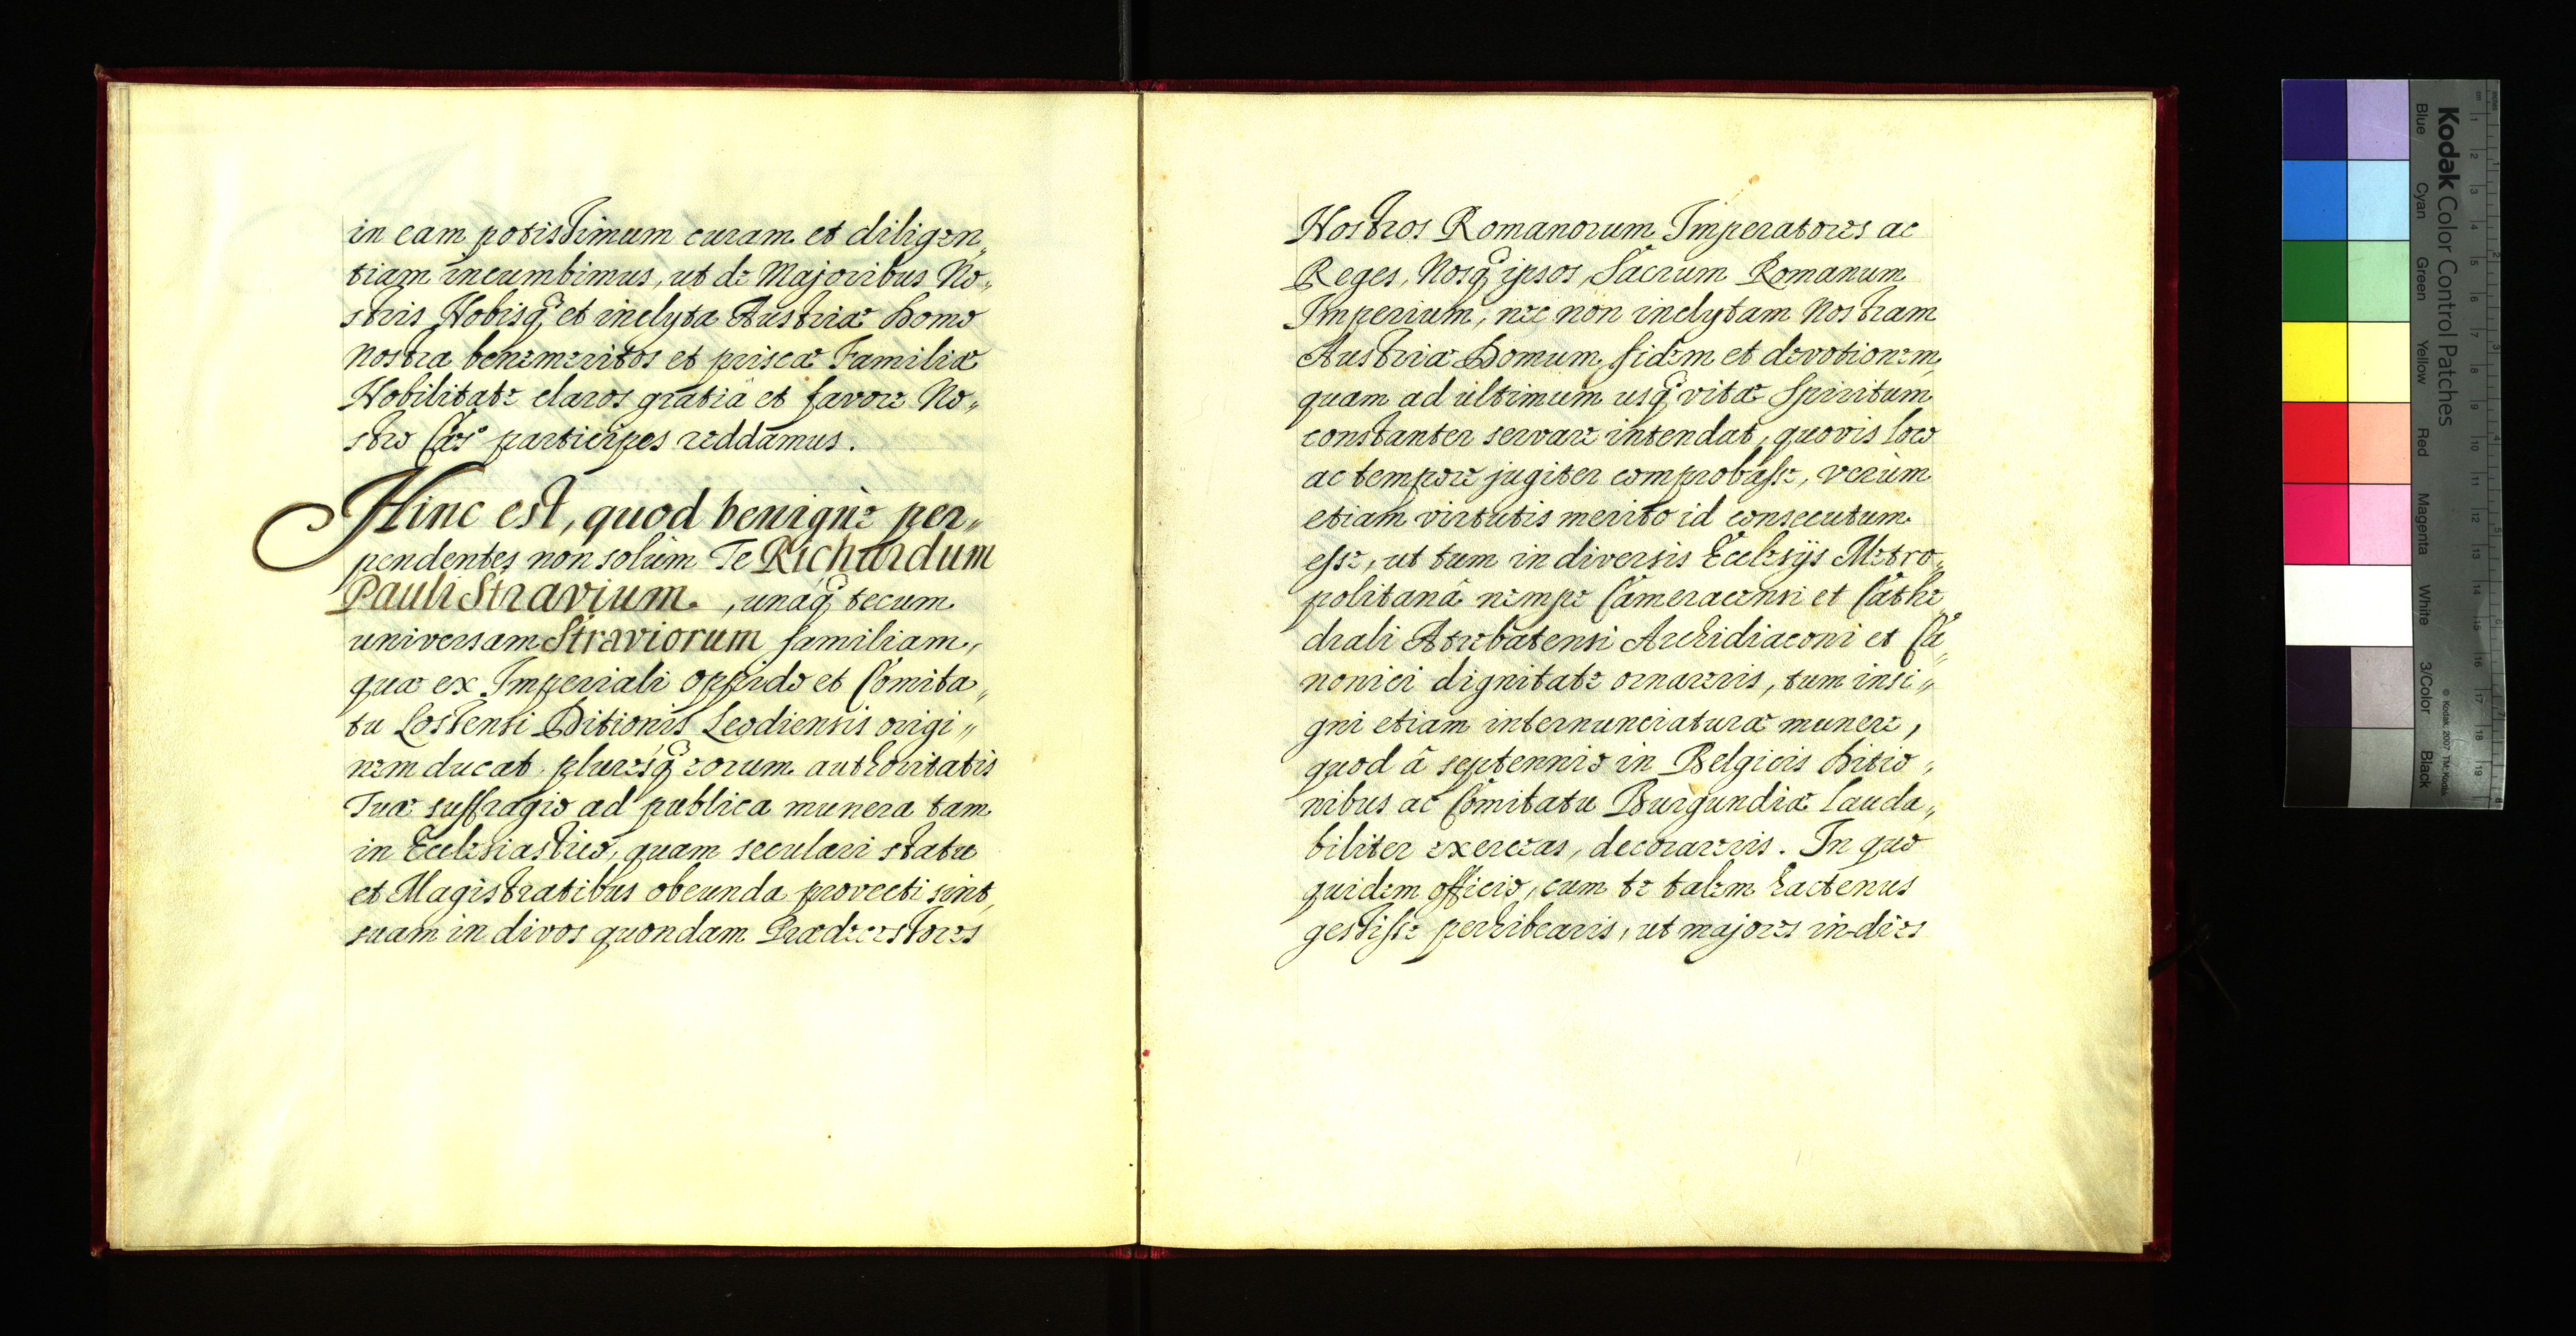 in eam potissimum curam et diligen„
tiam incumbimus, ut de Majoribus No„
stris Nobisq₃ et inclyta Austriæ Domo
nostra benemeritos et priscæ Familiæ
Nobilitate claros gratiâ et favore No„
stro Cæs° participes reddamus.
Hinc est, quod benignè per„
pendentes non solùm Te Richardum
Pauli Stravium, unaq₃ tecum
universam Straviorum familiam,
quæ ex Imperiali oppido et Comita„
tu Lossensi Ditionis Leodiensis origi„
nem ducat pluresq₃ eorum authoritatis
Tuæ suffragio ad publica munera tam
in Ecclesiastico, quam seculari statu
et Magistratibus obeunda provecti sint,
suam in divos quondam Prædecessores
Nostros Romanorum Imperatores ac
Reges, Nosq₃ ipsos, Sacrum Romanum
Imperium, nec non inclytam Nostram
Austriæ Domum, fidem et devotionem,
quam ad ultimum usq₃ vitæ Spiritum
constanter servare intendat, quovis loco
ac tempore jugiter comprobasse, verùm
etiam virtutis merito id consecutum
esse, ut tum in diversis Ecclesijs Metro„
politanâ nempe Cameracensi et Cathe„
drali Atrebatensi Archidiaconi et Ca„
nonici dignitate ornareris, tum insi„
gni etiam internunciaturæ munere,
quod â septennio in Belgicis Ditio„
nibus ac Comitatu Burgundiæ lauda„
biliter exerceas, decorareris. In quo
quidem officio, cum te talem hactenus
gestisse perhibearis, ut majores in-dies
Kodak Color Control Patches
Blue Cyan Green Yellow Red Magenta White 3/Color Black
© Kodak, 2007 TM: Kodak